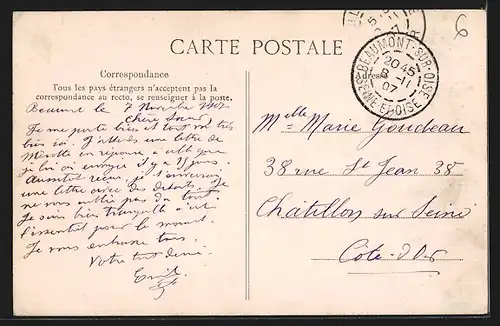 CARTE POSTALE
Correspondance
Tous les pays étrangers n'acceptent pas la
correspondance au recto, se renseigner à la poste.
Beaumont le 8 Novembre 1907
Chère Sœur,
Je me porte bien et tout va très
bien ici. J'attends une lettre de
en réponse à celle que
je lui ai envoyée il y a 15 jours.
Aussitôt reçue, je t'enverrai
une lettre avec des détails. Je
ne vous oublie pas du tout.
Je suis bien tranquille c'est
l'essentiel pour le moment.
Je vous embrasse tous.
Votre tout
Emile
BEAUMONT-SUR-OISE
20 45
8 -11
07
SEINE-ET-OISE
Adresse
Melle Marie Goudeau
38 rue St Jean 38
Chatillon sur Seine
Côte-d'Or
6